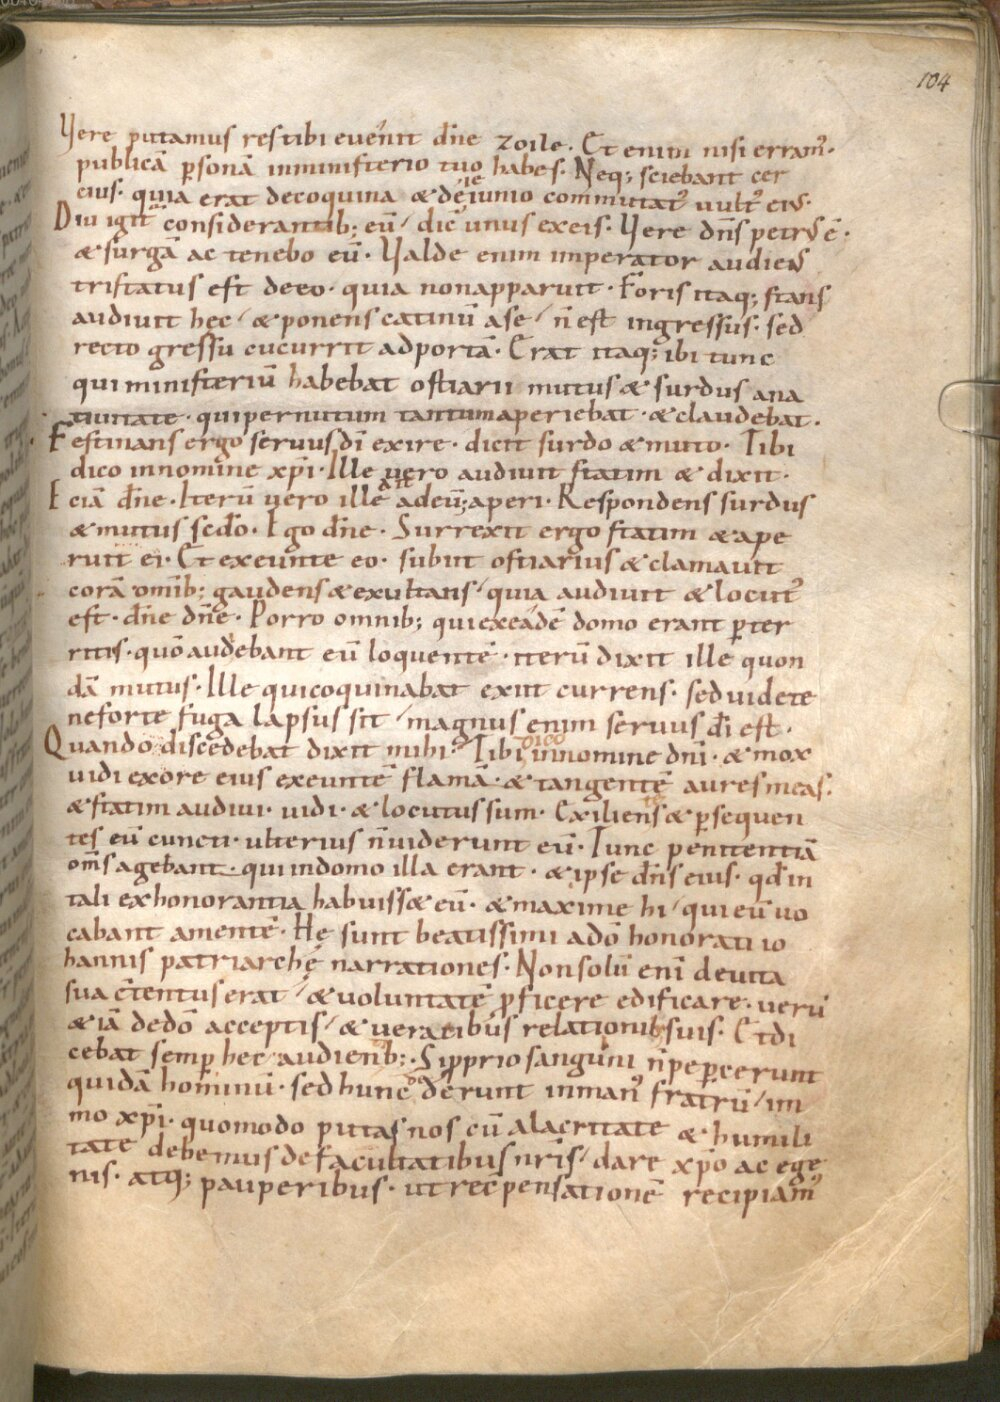 104
Vere putamus res tibi evenit dn̄e zoile. Et enim nisi erram᷒.
publicā p̱sonā inministerio tuo habes. Neq; sciebant cer
eius. quia erat decoquina & deieiunio commutat᷒ vult᷒ ei᷒.
Diu igit̄ considerantib; eū / dic̄ unus exeis. Vere dn̄s petr᷒ ē.
& surgā ac tenebo eū. Valde enim imperator audiens
tristatus est deeo. quia nonapparuit. Foris itaq; stans
audiuit hęc / & ponens catinū ase / n̄ est ingressus. sed
recto gressu cucurrit adportā. Erat itaq; ibi tunc
qui ministeriū habebat ostiarii mutus & surdus ana
tiuitate. quipernutum tantumaperiebat. & claudebat.
Festinans ergo seruus dī exire. dicit surdo & muto. Tibi
dico innomine xp̄i. Ille vero audiuit statim & dixit.
Eciā dn̄e. Iterū vero ille dix̄ adeū; aperi. Respondens surdus
& mutus sēdo. Ego dn̄e. Surrexit ergo statim & ape
ruit ei. Et exeunte eo. subiit ostiarius & clamauit
corā omīb; gaudens & exultans / quia audiuit & locut᷒
est. dn̄e dn̄e. Porro omnib; quiexeādē domo erant p̱ter
ritis. quō audebant eū loquentē. iterū dixit ille quon
dā mutus. Ille quicoquinabat exiit currens. sed uidete
neforte fuga lapsus sit / magnus enim seruus dī est.
Quando discedebat dixit mihi. Tibi dico innomine dn̄i. & mox
uidi exore eius exeuntē flamā. & tangentē aures meas.
& statim audiui. uidi. & locutus sum. Exilientes & p̱sequen
tes eū cuncti. ulterius n̄uiderunt eū. Tunc penitentiā
om̄s agebant. qui indomo illa erant. & ipse dn̄s eius. qd̄ in
tali exhonorantia habuiss& eū. & maxime hi / qui eū uo
cabant amentē. Hę sunt beatissimi adō honorati io
hannis patriarchę narrationes. Nonsolū enī deuita
sua c̄tentus erat / & voluntatē p̱ficere edificare. verū
& iā dedō acceptis / & veracibus relationibus suis. Et di
cebat semp̱ hec audientib;. Si pp̱rio sanguini n̄pep̱cerunt
quidā hominū. sed hunc dederunt inman᷒ fratrū / im
mo xp̄i. quomodo putas nos cū alacritate & humili
tate debemus defacultatibus nr̄is / dare xp̄o ac ege
nis. atq; pauperibus. ut recp̄ensationē recipiam᷒